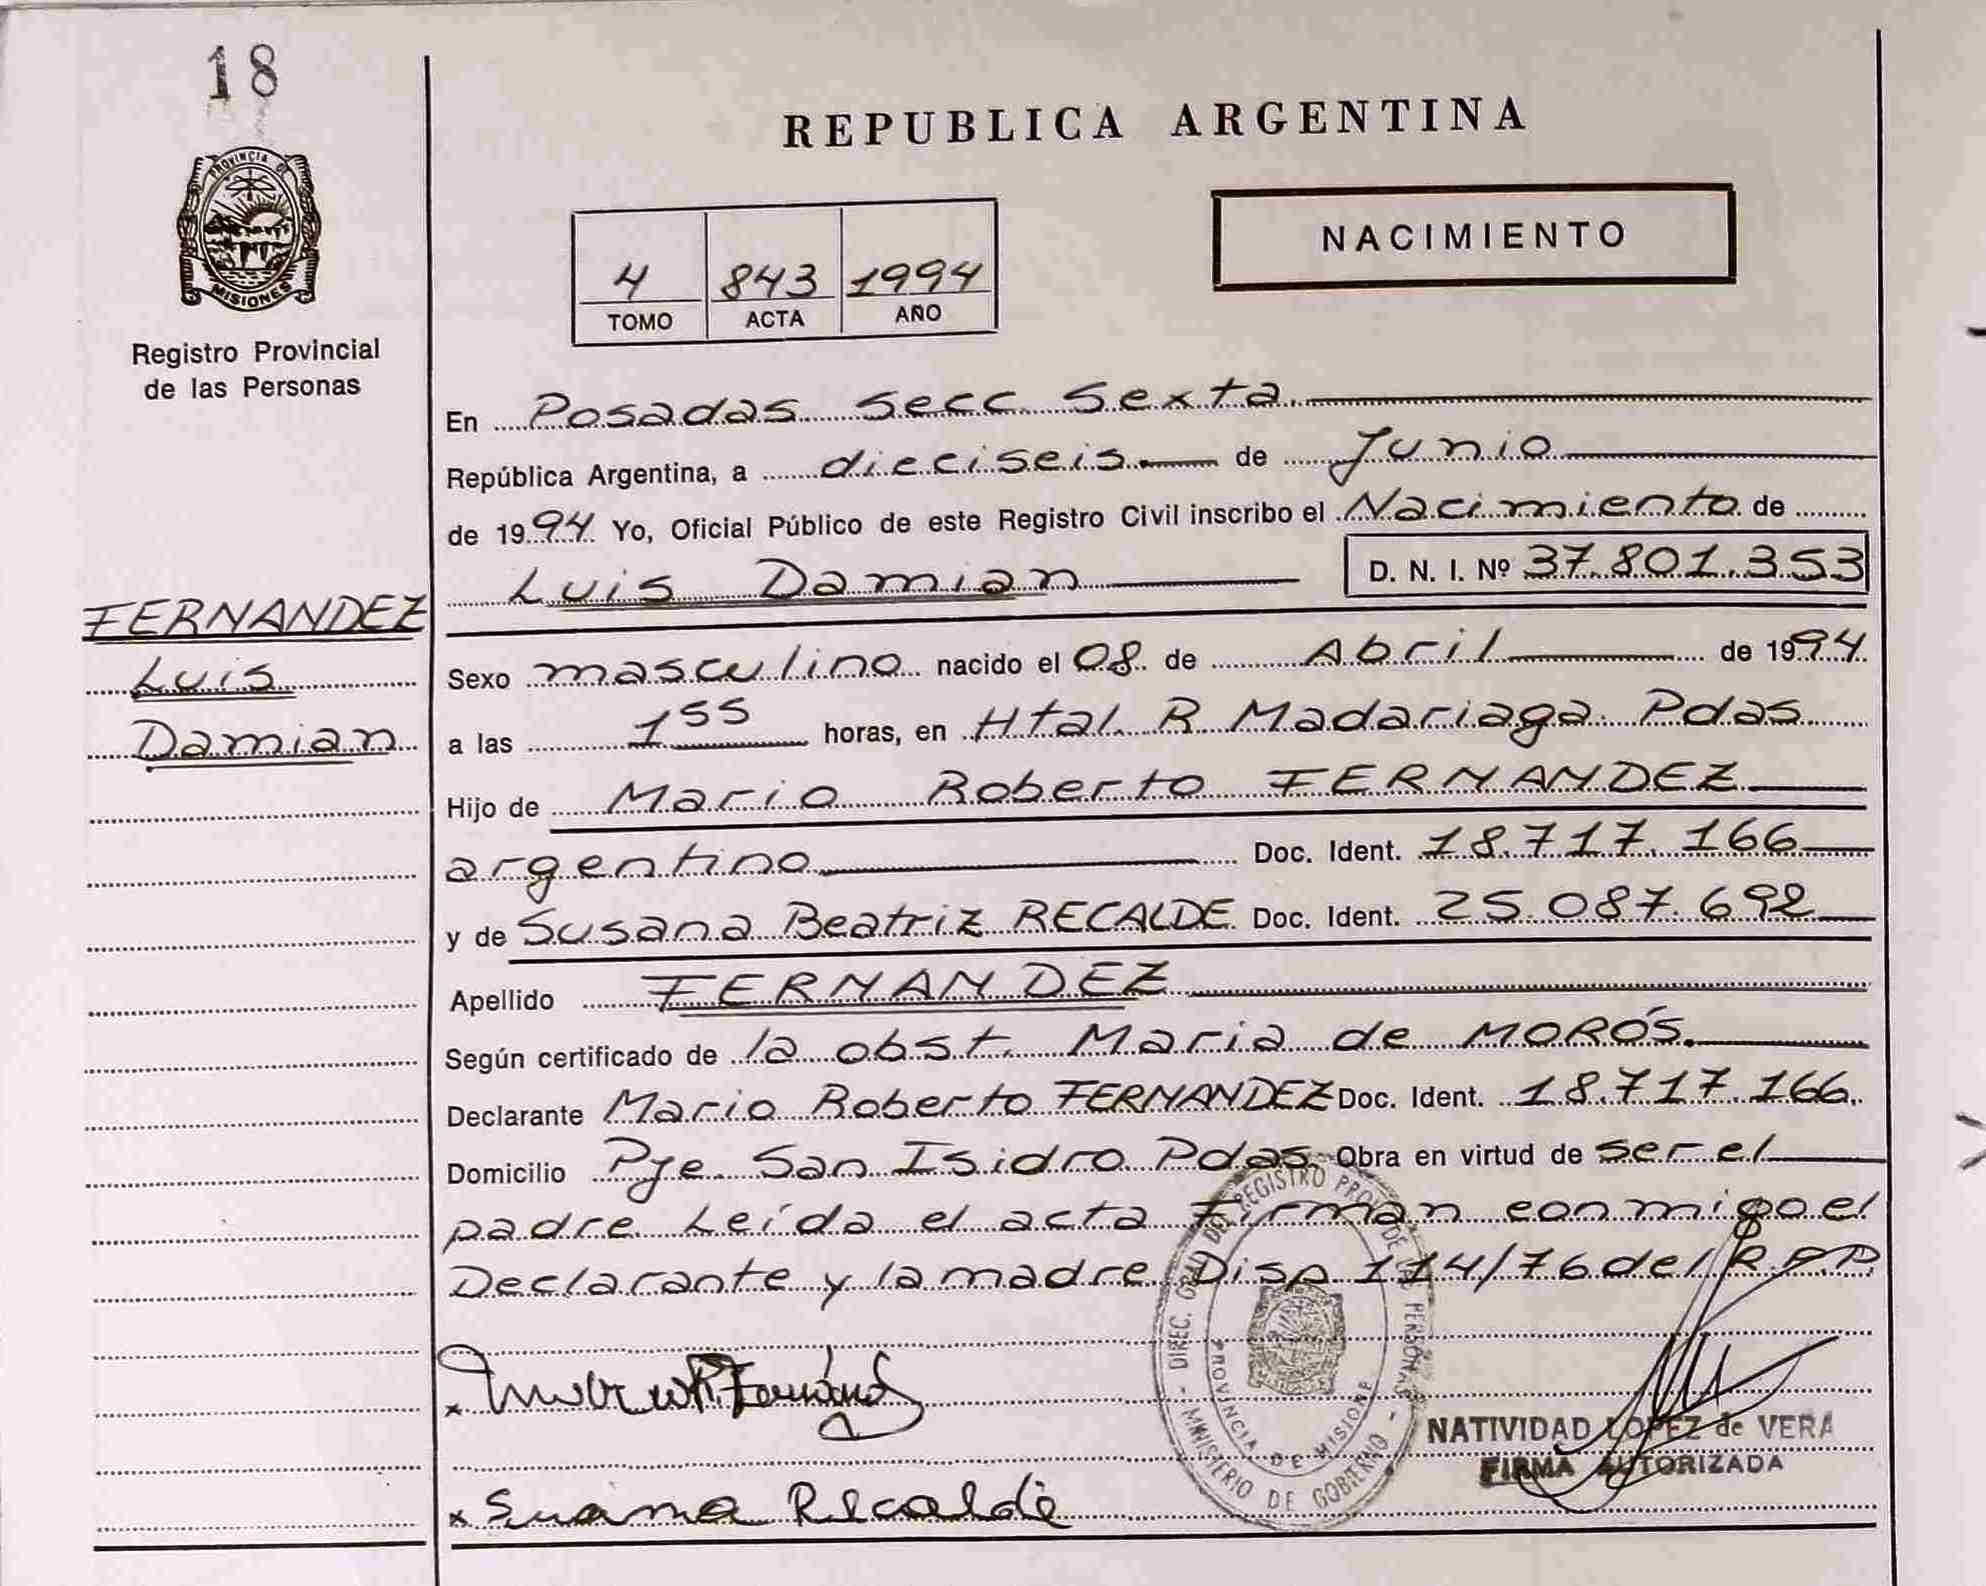 18
PROVINCIA DE
MISIONES
Registro Provincial
de las Personas
FERNANDEZ
Luis
Damian
REPUBLICA ARGENTINA
4 843 1994
TOMO ACTA AÑO
NACIMIENTO
En Posadas Secc. Sexta
República Argentina, a dieciseis de Junio
de 1994 Yo, Oficial Público de este Registro Civil inscribo el Nacimiento de
Luis Damian D. N. I. Nº 37.801.353
Sexo masculino nacido el 08 de Abril de 1994
a las 1 55 horas, en Htal. R Madariaga Pdas
Hijo de Mario Roberto FERNANDEZ
argentino Doc. Ident. 18.717.166
y de Susana Beatriz RECALDE Doc. Ident. 25.087.692
Apellido FERNANDEZ
Según certificado de la obst. Maria de MORÓS.
Declarante Mario Roberto FERNANDEZ Doc. Ident. 18.717.166.
Domicilio Pje. San Isidro Pdas. Obra en virtud de ser el
padre. Leída el acta Firman conmigo el
Declarante y la madre Disp 114/76 del R.P.P.
DIREC. GRAL DEL REGISTRO PROV. DE LAS PERSONAS
PROVINCIA DE MISIONES
MINISTERIO DE GOBIERNO
NATIVIDAD LOPEZ de VERA
FIRMA AUTORIZADA
x Susana Recalde